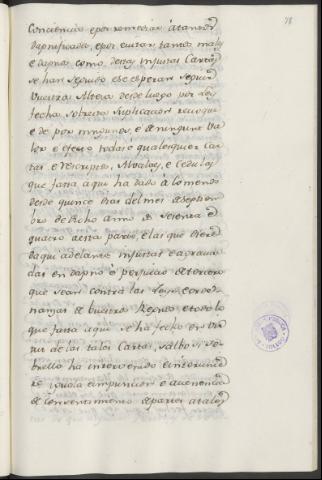 78
Conciencia e por remediar á tantos
dapnificados, e por evitar tantos males
e dapnos como destas injustas Cartas
se han seguido e se esperan seguir
Vuestra Alteza desde luego por Ley
fecha á nuestra Suplicacion revoque
e dé por ningunas, e de ningunt va
lor e efecto todas e qualesquier Car
tas e descriptos, Alvalas, e Cedulas
que fasta aqui ha dado á lo menos
desde quince dias del mes de Septiem
bro de dicho anno de sesenta e
quatro a esta parte, e las que diere
daqui adelante injustas e agravia
das en dapno ó perjuicio de tercero
que sean contra las Leyes e orde
nanzas de vuestros Regnos e todo lo
que fasta aqui se ha fecho en vir
tud de las tales Cartas, salvo si so
brello ha intervenido ó interviniere
iguala e transaccion e avenencia
de consentimiento de partes á tales